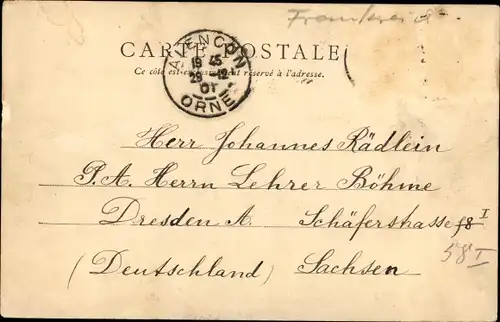 Frankreich
CARTE POSTALE
Ce côté est exclusivement réservé à l'adresse.
ALENÇON
19 45
28 12
01
ORNE
Herr Johannes Rädlein
P. A. Herrn Lehrer Böhme
Dresden A. Schäferstrasse 58 I
58 I
(Deutschland) Sachsen